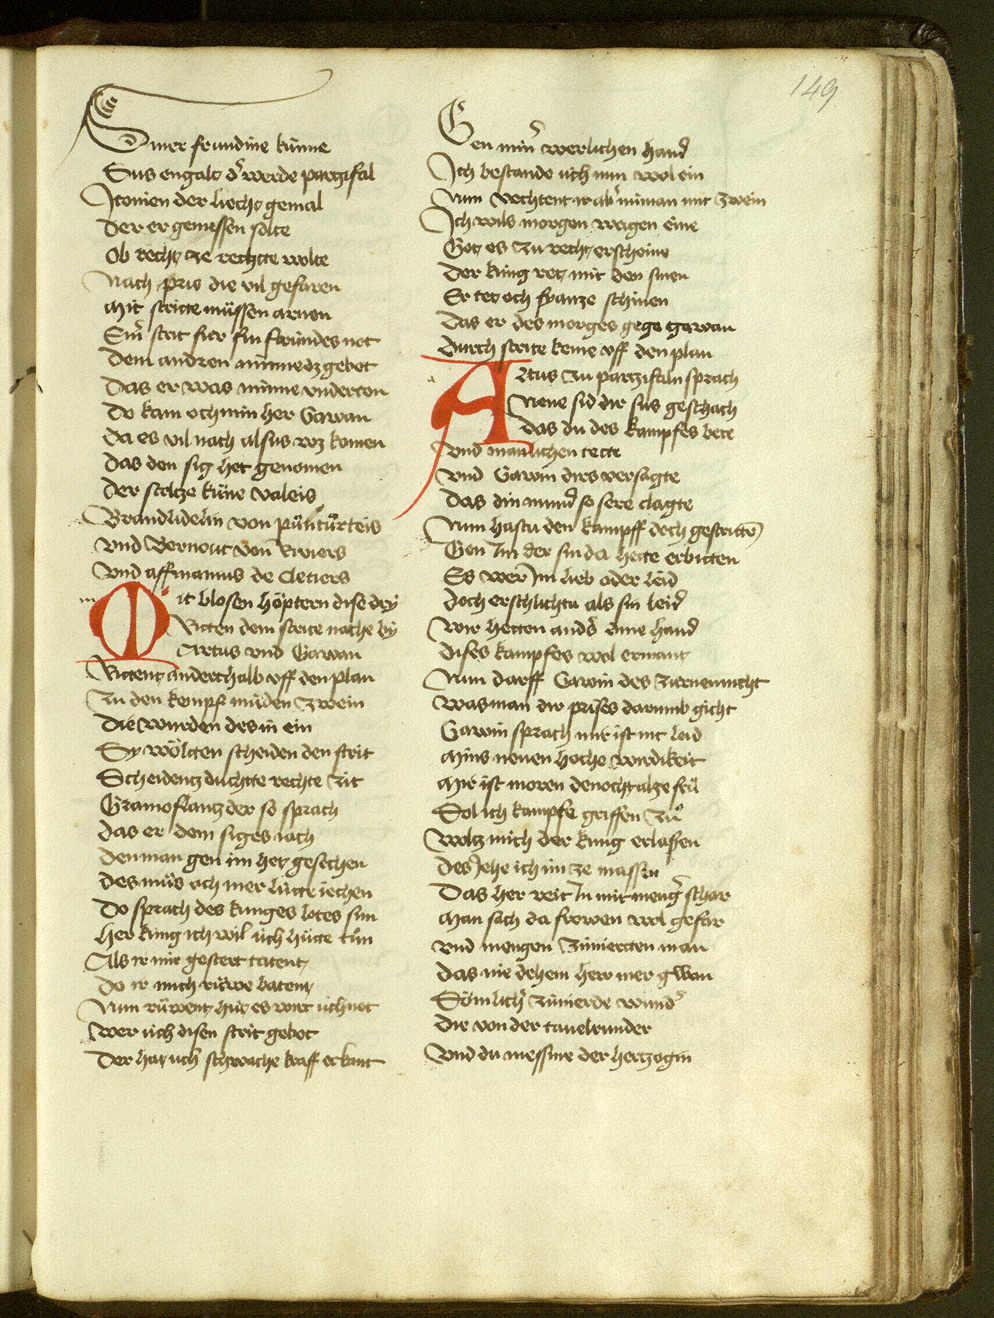 149
Siner frundine kunne
Sus engalt d' werde partzifal
Itonien der liecht gemal
Der er geniessen solte
Ob recht ze rechtte wolte
Nach pris die vil gefaren
Mit stritte müssen arnen
Sin strit fier sin fründes not
Dem andren minnen gebot
Das er was minne vnderton
Do kam och min her Gawan
Da es vil nach alsus waz komen
Das den sig het genomen
Der stoltze küne valeis
Brandlidelin von püntürteis
Vnd Bernout von Riviers
Vnd affinamus de Cletiers
Mit blosen höptern dise dry
Ritten dem strite nache by
Artus vnd Gawan
Rittent anderthalb vff den plan
Zu den kempf müden zwein
Die wurden des in ein
Sy wöltten scheiden den strit
Scheidentz duchtte rechte zit
Gramoflantz der so sprach
Das er dem siges iach
Den man gen im het gesechen
Des müs och mer lütte iechen
Do sprach des kunges lotes sun
Her kung ich wil üch hütte tün
Als ir mir gestert tatent
Do ir mich rüwe batent
Nun rüwent hüt es wirt üch not
Wer üch disen strit gebot
Der hat üch schwache kraff erkant
Gen min' werlichen hand'
Ich bestande üch nun wol ein
Nun vechtent ir ab' niman mit zwein
Ich wils morgen wagen eine
Got es zu recht erscheine
Der kung ret mit den sinen
Er tet och fyanze schinen
Das er des morges gege gawan
Durch strite keme vff den plan
Artus zu partzifaln sprach
Neue sid dir sus geschach
Das du des kampfes bete
Vnd manlichen tette
Vnd Gawin dirs versagte
Das din mund so sere clagte
Nun hastu den kampff doch gestritten
Gen Im der sin da hette erbitten
Es wer Im lieb oder leid
Doch erschlichtu als sin leid'
Wir hetten and's eine hand'
Dises kampfes wol ermant
Nun darff Gawin des zurnen nicht
Was man dir prises darumb gicht
Gawin sprach mir ist nit leid
Mins neuen hoche wirdikeit
Mir ist moren denocht alze frü
Sol ich kampfe griffen zu
Woltz mich der kung erlassen
Des Iehe ich im ze massen
Das her reit In mit meng' schar
Man sach da frowen wol gefar
Vnd mengen zimierten man
Das nie dehem herr mer gwan
Sömlich' zimierde wund'
Die von der tauelrunder
Vnd du messine der hertzogin